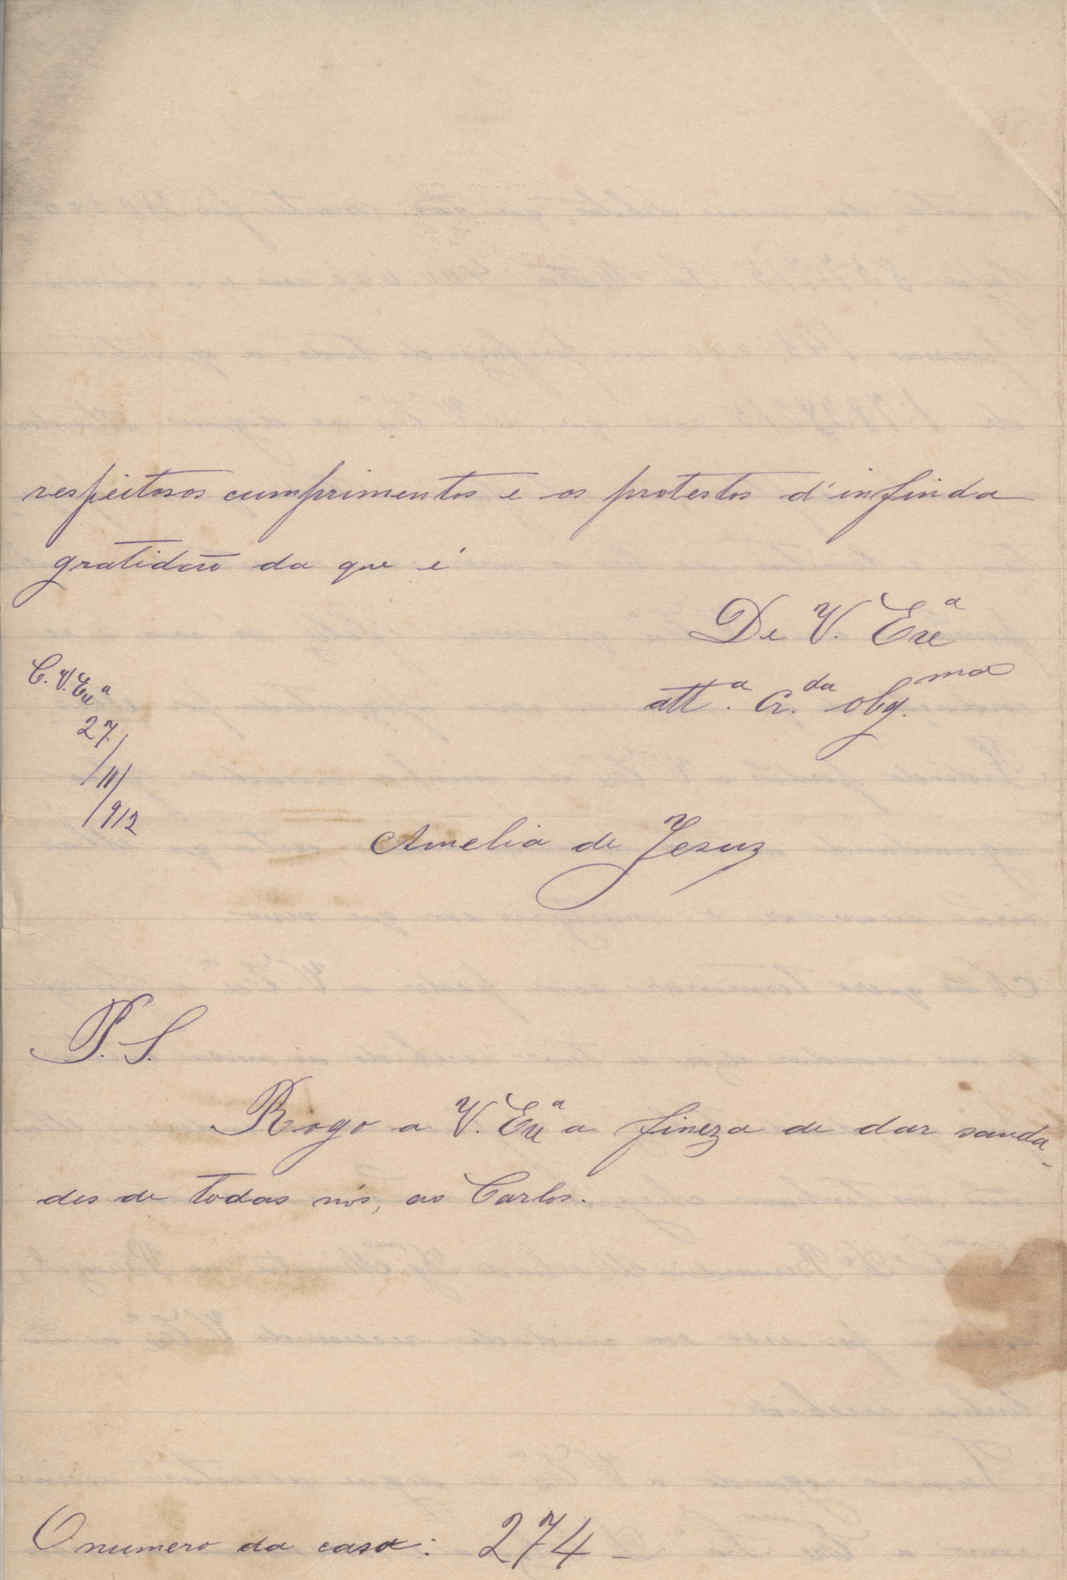 respeitosos cumprimentos e os protestos d'infinda
gratidão da que é
De V. Exª
attª. cr.da obg.ma
C. V. Exª
27/
/11/
/912
Amelia de Jesuz
P. S.
Rogo a V. Exª a fineza de dar sauda-
des de todas nós, ao Carlos.
O numero da casa: 274 -